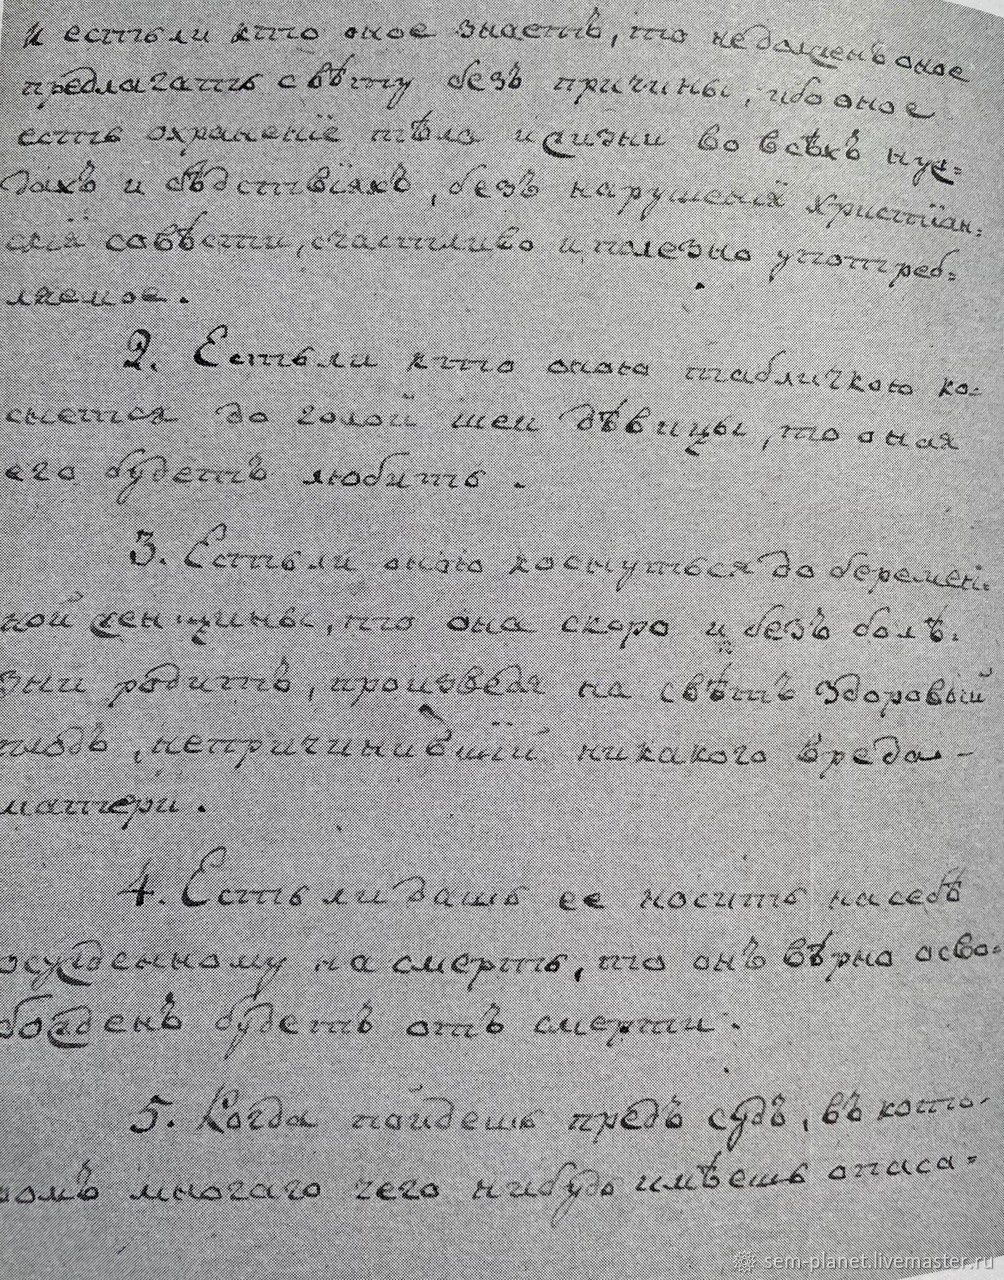 и естьли кто оное знаетъ, то недолженъ оное
предлагать свѣту безъ причины, ибо оное
есть охраненïе тѣла и жизни во всѣхъ нуж=
дахъ и бѣдствïяхъ, безъ нарушенïя Христïан=
скïя совѣсти, счастливо и полезно употреб=
ляемое.
2. Естьли кто оною табличкою ко=
снется до голой шеи дѣвицы, то оная
его будетъ любить.
3. Естьли оною коснуться до беремен=
ной женщины, то она скоро и безъ болѣ=
зни родитъ, произведя на свѣтъ здоровый
плодъ, непричинившïй никакого вреда-
матери.
4. Естьли дашь ее носить на себѣ
осужденному на смерть, то онъ вѣрно осво=
божденъ будетъ отъ смерти.
5. Когда пойдешь предъ судъ, въ кото-
ромъ многаго чего нибудь имѣешь опаса=
sem-planet.livemaster.ru